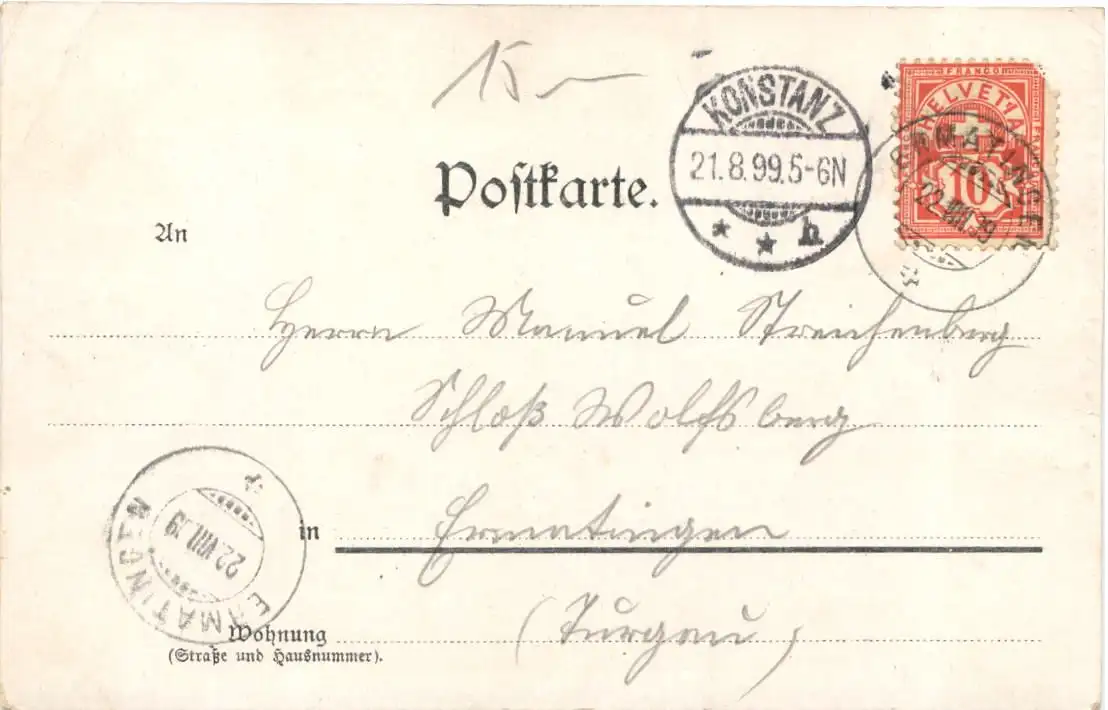 15 –
Postkarte.
KONSTANZ
21.8.99.5-6N
* * h
FRANCO
HELVETIA
10
ERMATINGEN
22.VIII.99
An
Herrn Manuel Streichenberg
Schloß Wolfsberg
in Ermatingen
(Turgau)
ERMATINGEN
22.VIII.99
Wohnung
(Straße und Hausnummer).